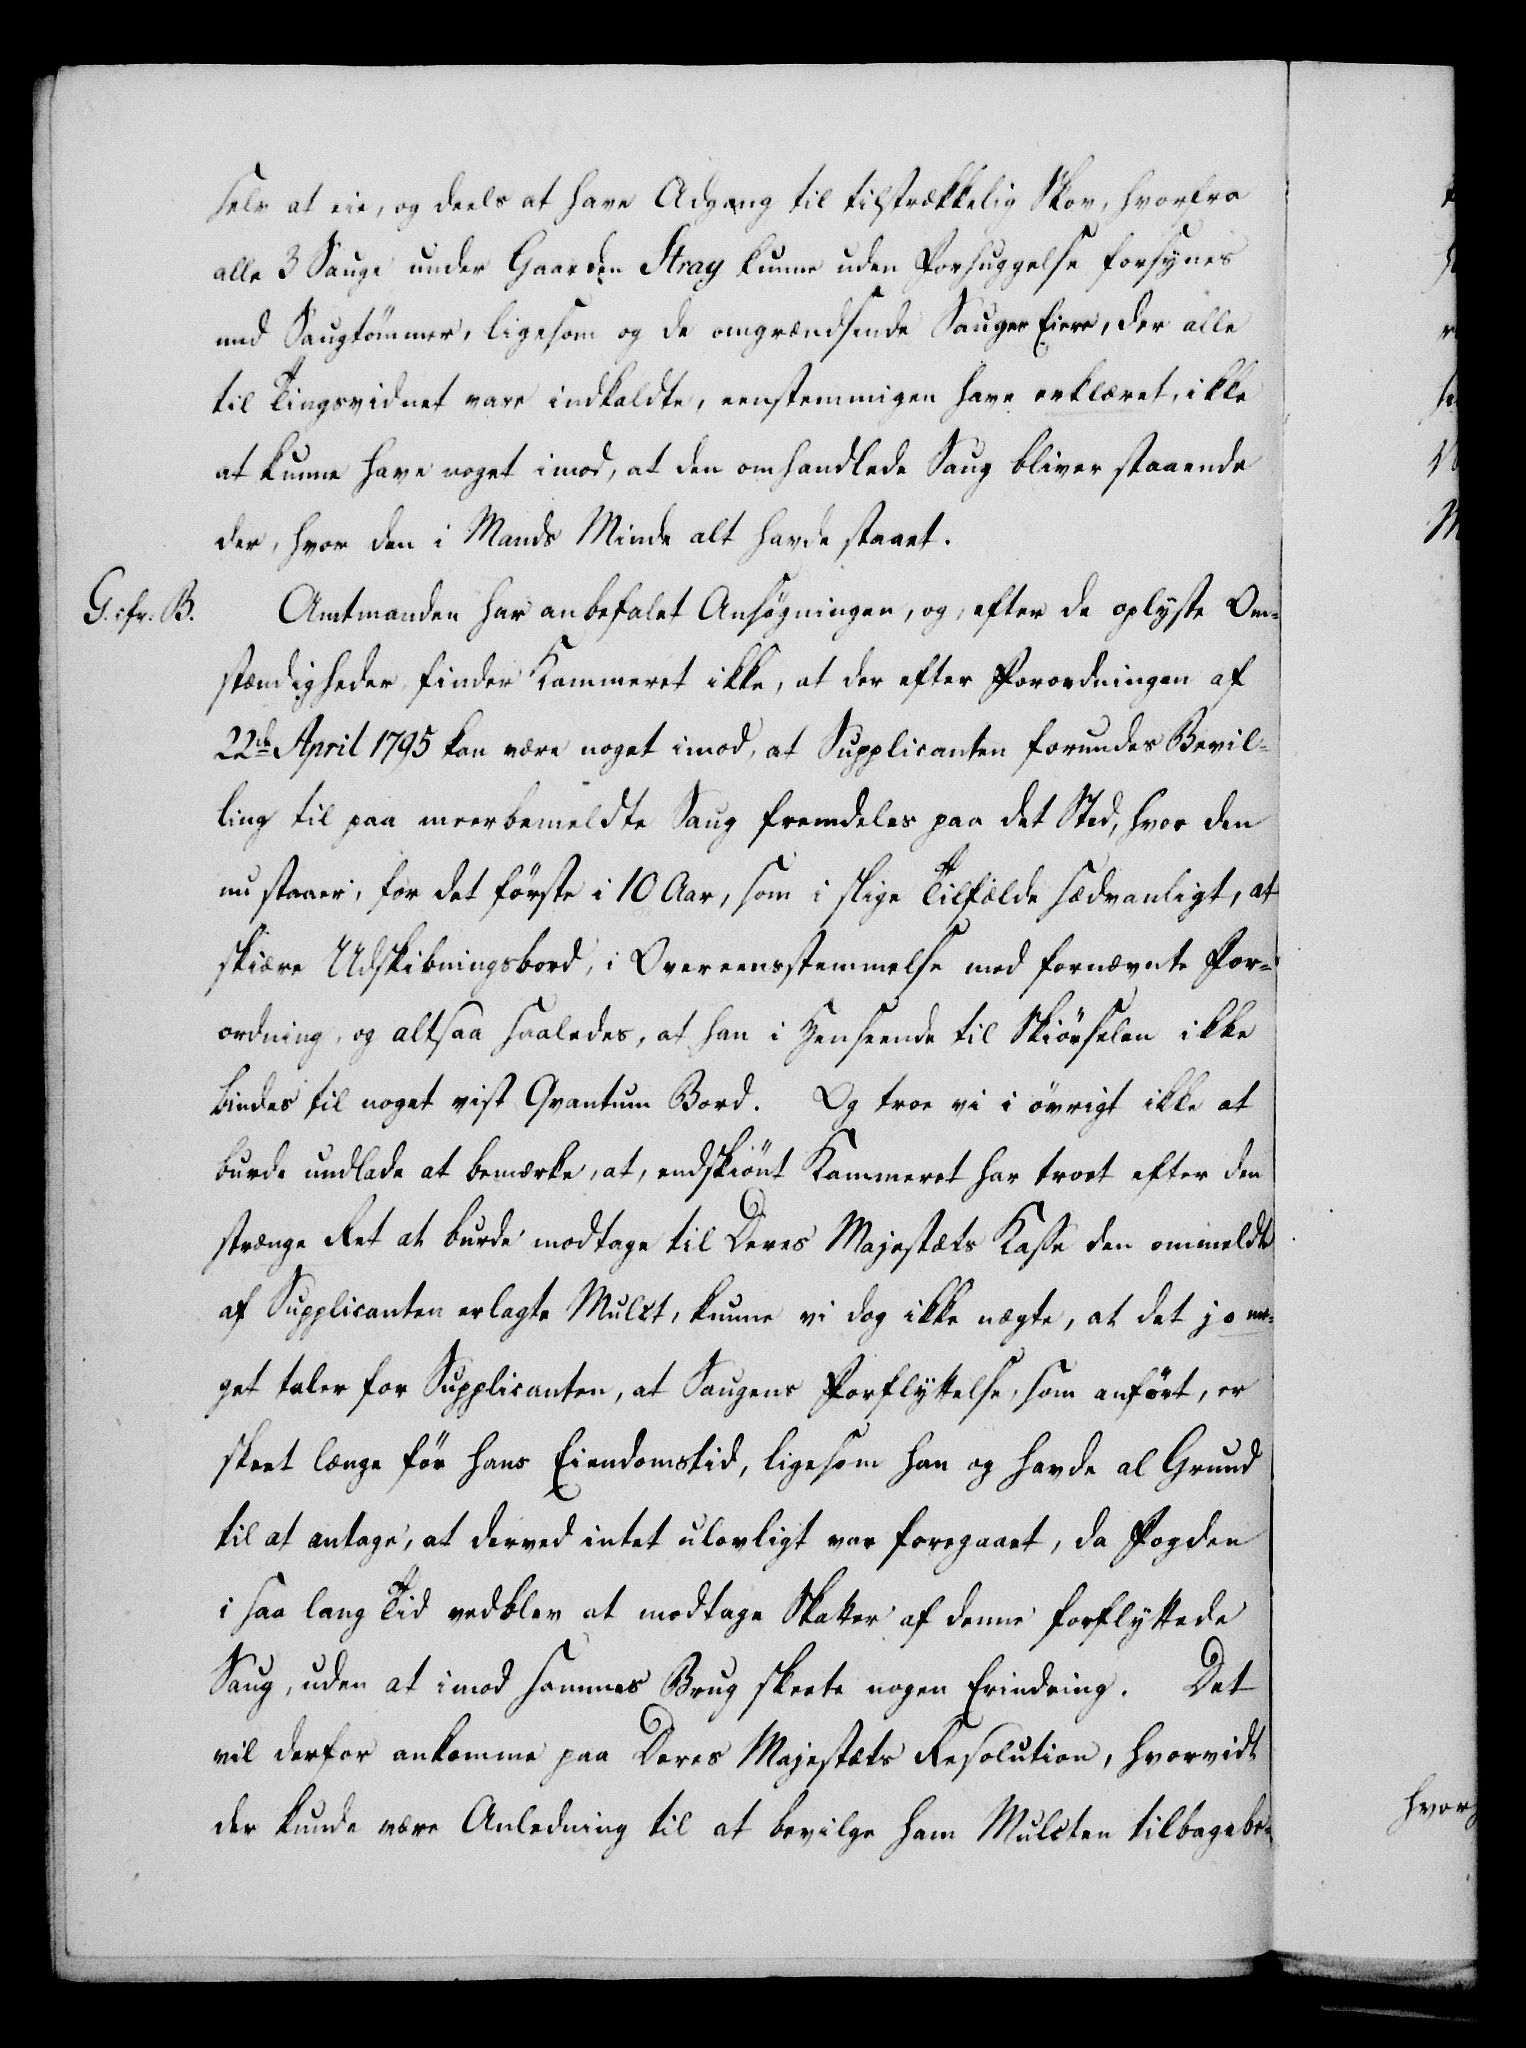 selv at eie, og deels at have Adgang til tilstrækkelig Skov, hvorfra
alle 3 Sauge under Gaarden Stray kunne uden Forhuggelse forsynes
med Saugtömmer, ligesom og de omgrændsende Sauger Eiere, der alle
til Tingsvidnet vare indkaldte, eenstemmigen have erklæret, ikke
at kunne have noget imod, at den omhandlede Saug bliver staaende
der, hvor den i Mands Minde alt havde staaet.
G. cfr. B.
Amtmanden har anbefalet Ansögningen, og, efter de oplyste Om-
stændigheder finder Kammeret ikke, at der efter Forordningen af
22de April 1795 kan være noget imod, at Supplicanten forundes Bevil-
ling til paa meerbemeldte Saug fremdeles paa det Sted, hvor den
nu staaer, for det förste i 10 Aar, som i slige Tilfælde sædvanligt, at
skiære Udskibningsbord, i Overeensstemmelse med fornævnte For-
ordning, og altsaa saaledes, at han i Henseende til Skiörselen ikke
bindes til noget vist Qvantum Bord. Og troe vi i övrigt ikke at
burde undlade at bemærke, at, endskiönt Kammeret har troet efter den
strænge Ret at burde modtage til Deres Majestæts Kasse den ommeldte
af Supplicanten erlagte Mulct, kunne vi dog ikke nægte, at det jo me-
get taler for Supplicanten, at Saugens Forflyttelse, som anfört, er
skeet længe för hans Eiendomstid, ligesom han og havde al Grund
til at antage, at derved intet ulovligt var foregaaet, da Fogden
i saa lang Tid vedblev at modtage Skatter af denne forflyttede
Saug, uden at imod sammes Brug skeete nogen Erindring. Det
vil derfor ankomme paa Deres Majestæts Resolution, hvorvidt
der kunde være Anledning til at bevilge ham Mulcten tilbagebe-